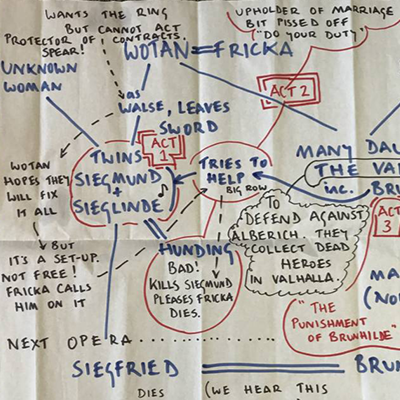 WANTS THE RING
BUT CANNOT ACT
PROTECTOR OF CONTRACTS.
SPEAR!
WOTAN=FRICKA
UPHOLDER OF MARRIAGE
BIT PISSED OFF
"DO YOUR DUTY"
UNKNOWN
WOMAN
ACT 2
as
WALSE, LEAVES
SWORD
ACT
1
TWINS
SIEGMUND
+
SIEGLINDE
WOTAN
HOPES THEY
WILL FIX
IT ALL
TRIES TO
HELP
BIG ROW
MANY DAU
THE VA
inc. BRU
ACT
3
TO
DEFEND AGAINST
ALBERICH. THEY
COLLECT DEAD
HEROES
IN VALHALLA.
BUT
IT'S A SET-UP.
NOT FREE!
FRICKA CALLS
HIM ON IT
HUNDING
BAD!
KILLS SIEGMUND
PLEASES FRICKA
DIES.
MA
(NO
"THE
PUNISHMENT
OF BRUNHILDE"
NEXT OPERA
SIEGFRIED
BRUN
DIES
(WE HEAR THIS